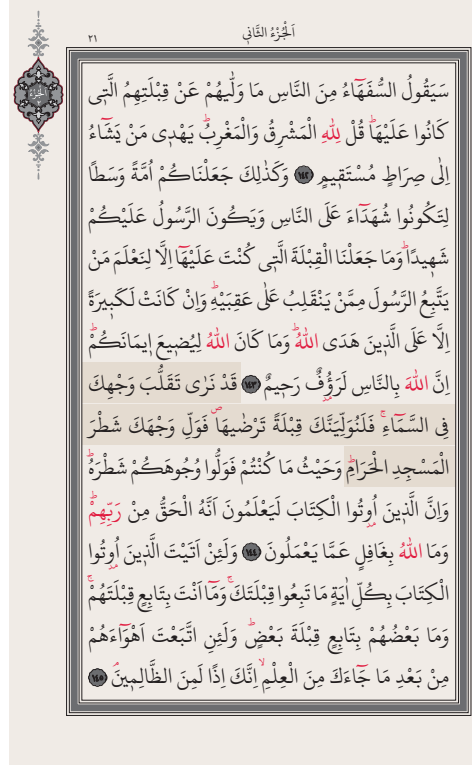 اَلْجُزْءُ الثَّانٖي
٢١
سَيَقُولُ السُّفَهَٓاءُ مِنَ النَّاسِ مَا وَلّٰيهُمْ عَنْ قِبْلَتِهِمُ الَّتٖى
كَانُوا عَلَيْهَاؕ قُلْ لِلّٰهِ الْمَشْرِقُ وَالْمَغْرِبُؕ يَهْدٖى مَنْ يَشَٓاءُ
اِلٰى صِرَاطٍ مُسْتَقٖيمٍ ﴿١٤٢﴾ وَكَذٰلِكَ جَعَلْنَاكُمْ اُمَّةً وَسَطًا
لِتَكُونُوا شُهَدَٓاءَ عَلَى النَّاسِ وَيَكُونَ الرَّسُولُ عَلَيْكُمْ
شَهٖيدًاؕ وَمَا جَعَلْنَا الْقِبْلَةَ الَّتٖى كُنْتَ عَلَيْهَٓا اِلَّا لِنَعْلَمَ مَنْ
يَتَّبِعُ الرَّسُولَ مِمَّنْ يَنْقَلِبُ عَلٰى عَقِبَيْهِؕ وَاِنْ كَانَتْ لَكَبٖيرَةً
اِلَّا عَلَى الَّذٖينَ هَدَى اللّٰهُؕ وَمَا كَانَ اللّٰهُ لِيُضٖيعَ اٖيمَانَكُمْؕ
اِنَّ اللّٰهَ بِالنَّاسِ لَرَؤُفٌ رَحٖيمٌ ﴿١٤٣﴾ قَدْ نَرٰى تَقَلُّبَ وَجْهِكَ
فِى السَّمَٓاءِۚ فَلَنُوَلِّيَنَّكَ قِبْلَةً تَرْضٰيهَاࣕ فَوَلِّ وَجْهَكَ شَطْرَ
الْمَسْجِدِ الْحَرَامِؕ وَحَيْثُ مَا كُنْتُمْ فَوَلُّوا وُجُوهَكُمْ شَطْرَهُؕ
وَاِنَّ الَّذٖينَ اُوتُوا الْكِتَابَ لَيَعْلَمُونَ اَنَّهُ الْحَقُّ مِنْ رَبِّهِمْؕ
وَمَا اللّٰهُ بِغَافِلٍ عَمَّا يَعْمَلُونَ ﴿١٤٤﴾ وَلَئِنْ اَتَيْتَ الَّذٖينَ اُوتُوا
الْكِتَابَ بِكُلِّ اٰيَةٍ مَا تَبِعُوا قِبْلَتَكَۚ وَمَٓا اَنْتَ بِتَابِعٍ قِبْلَتَهُمْۚ
وَمَا بَعْضُهُمْ بِتَابِعٍ قِبْلَةَ بَعْضٍؕ وَلَئِنِ اتَّبَعْتَ اَهْوَٓاءَهُمْ
مِنْ بَعْدِ مَا جَٓاءَكَ مِنَ الْعِلْمِۙ اِنَّكَ اِذًا لَمِنَ الظَّالِمٖينَۘ ﴿١٤٥﴾